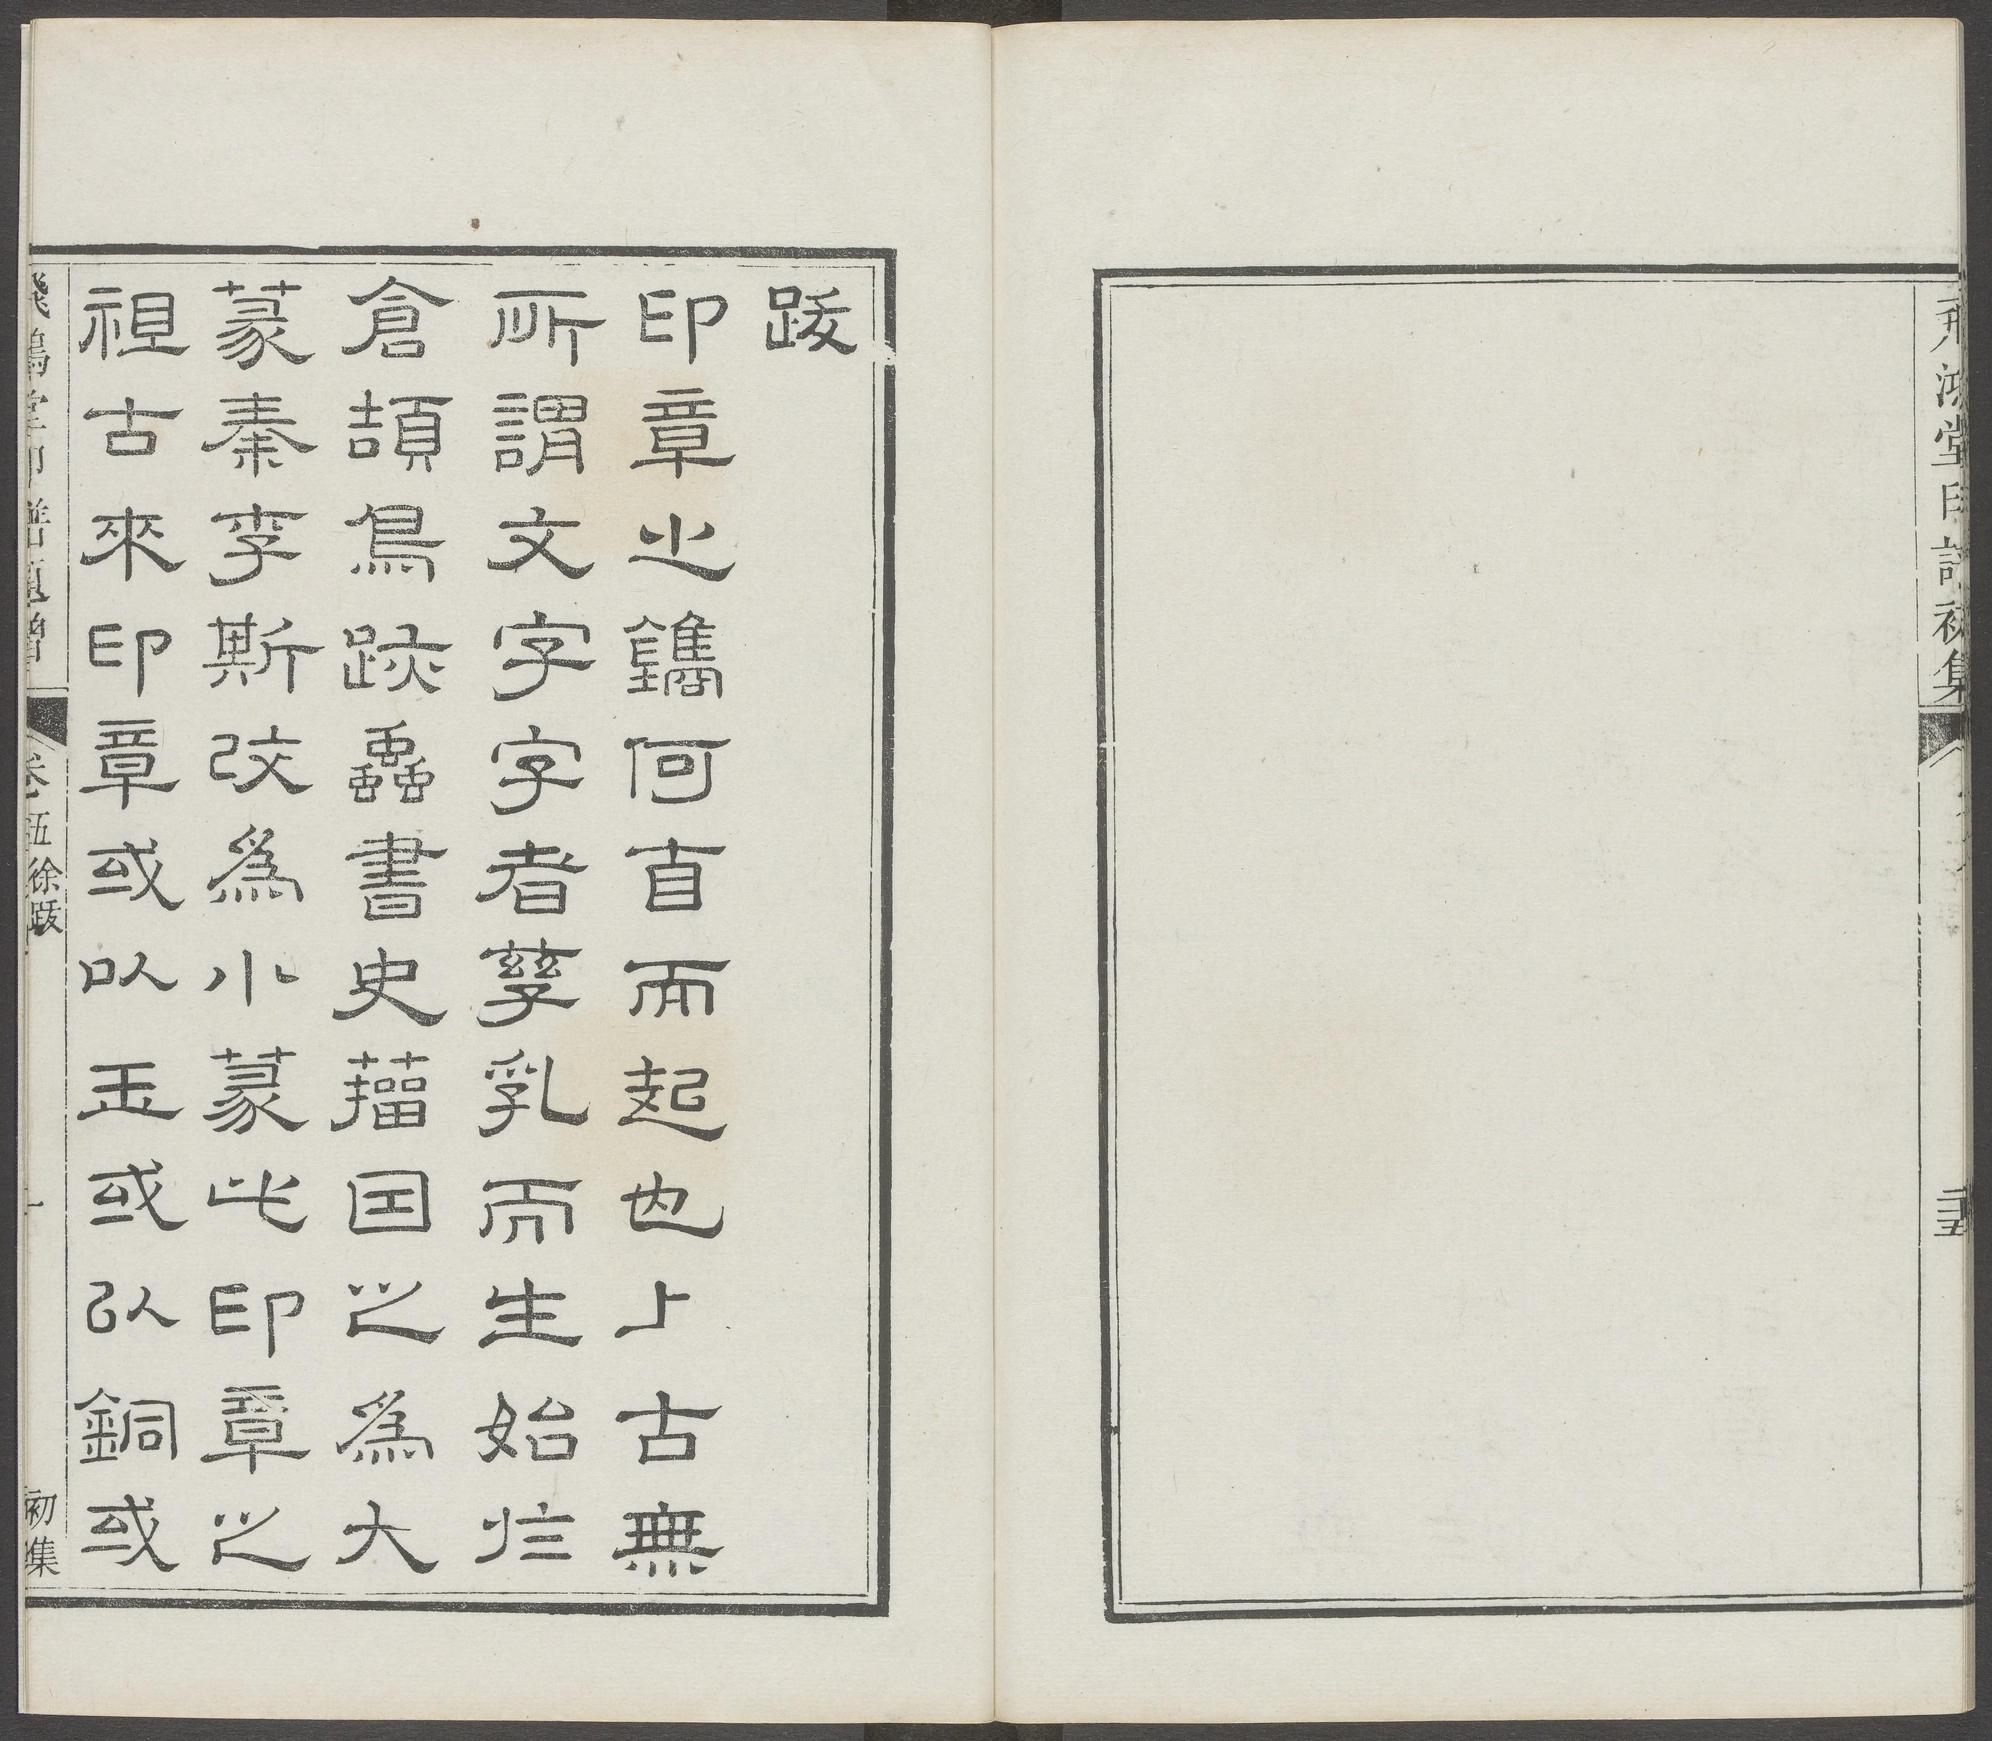 飛鴻堂印譜初集
跋
印章之鐫何自而起也上古無
所謂文字字者孳乳而生始於
倉頡鳥跡蟲書史籀因之為大
篆秦李斯改為小篆此印章之
祖古來印章或以玉或以銅或
飛鴻堂印譜
卷五徐跋
一
初集